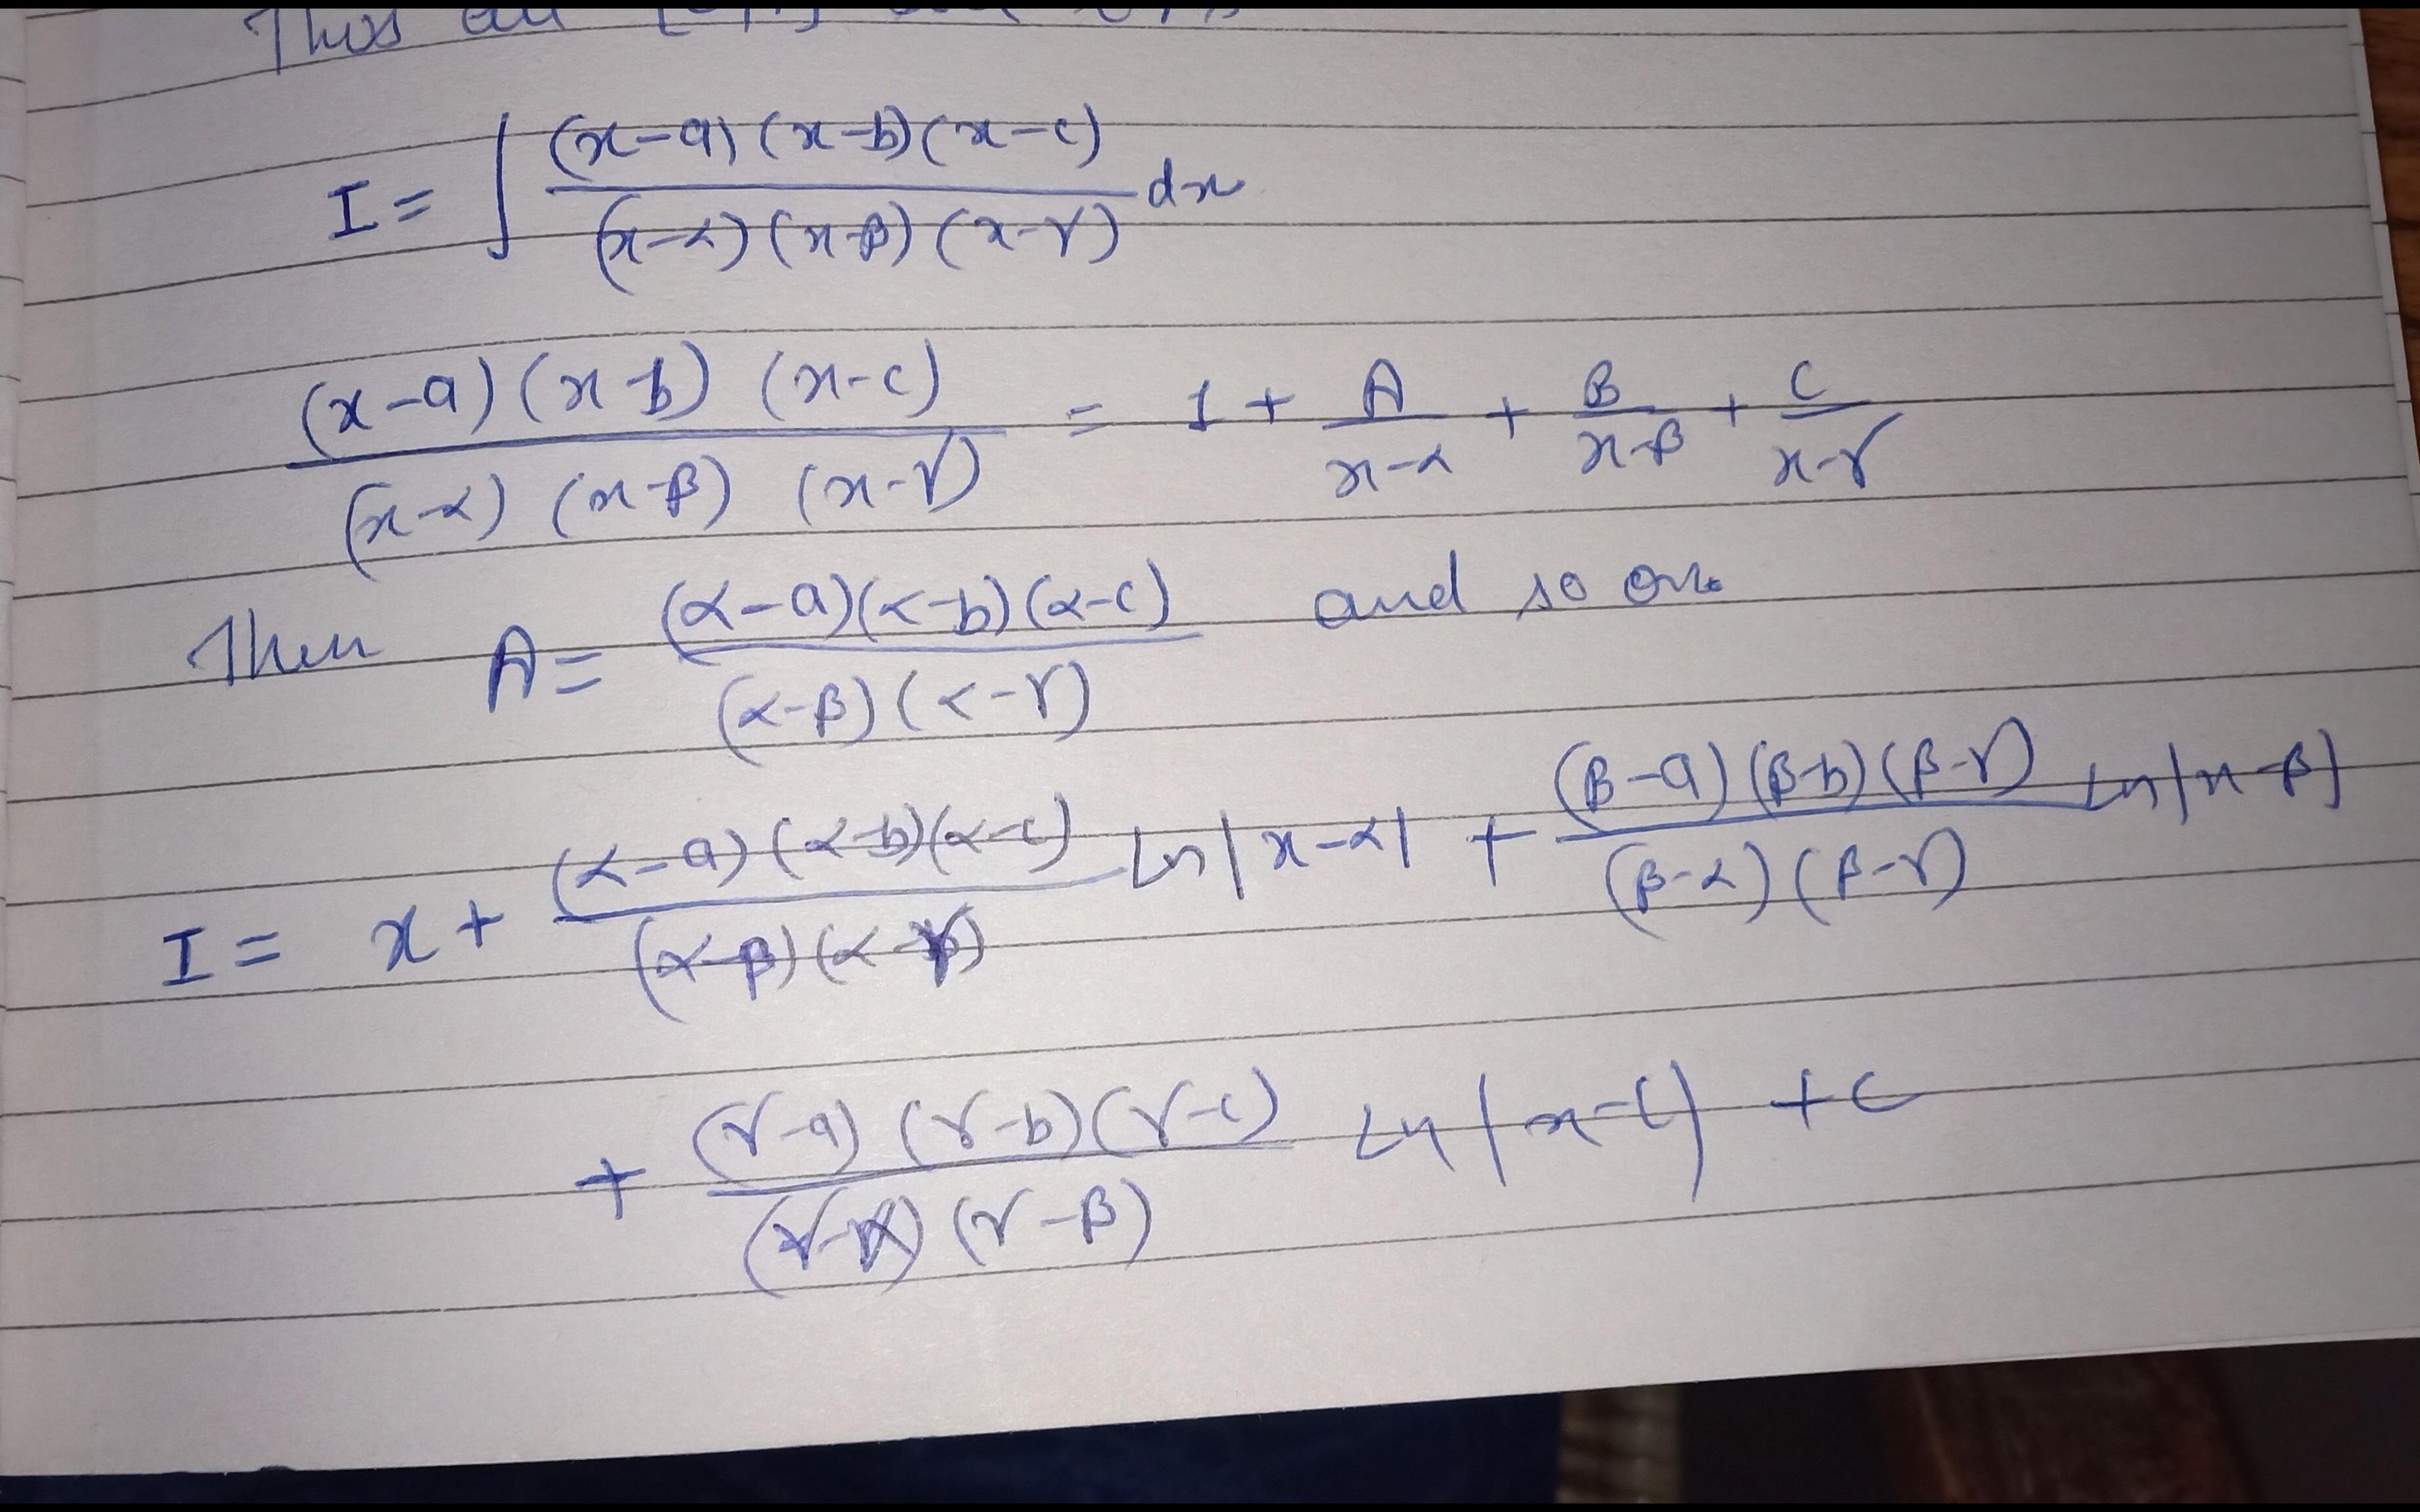 Thus all
I = ∫ (x-a)(x-b)(x-c) / (x-α)(x-β)(x-γ) dx
(x-a)(x-b)(x-c) / (x-α)(x-β)(x-γ) = 1 + A/(x-α) + B/(x-β) + C/(x-γ)
Then A = (α-a)(α-b)(α-c) / (α-β)(α-γ) and so on.
I = x + (α-a)(α-b)(α-c) / (α-β)(α-γ) Ln|x-α| + (β-a)(β-b)(β-γ) / (β-α)(β-γ) Ln|x-β|
+ (γ-a)(γ-b)(γ-c) / (γ-α)(γ-β) Ln|x-c| + C